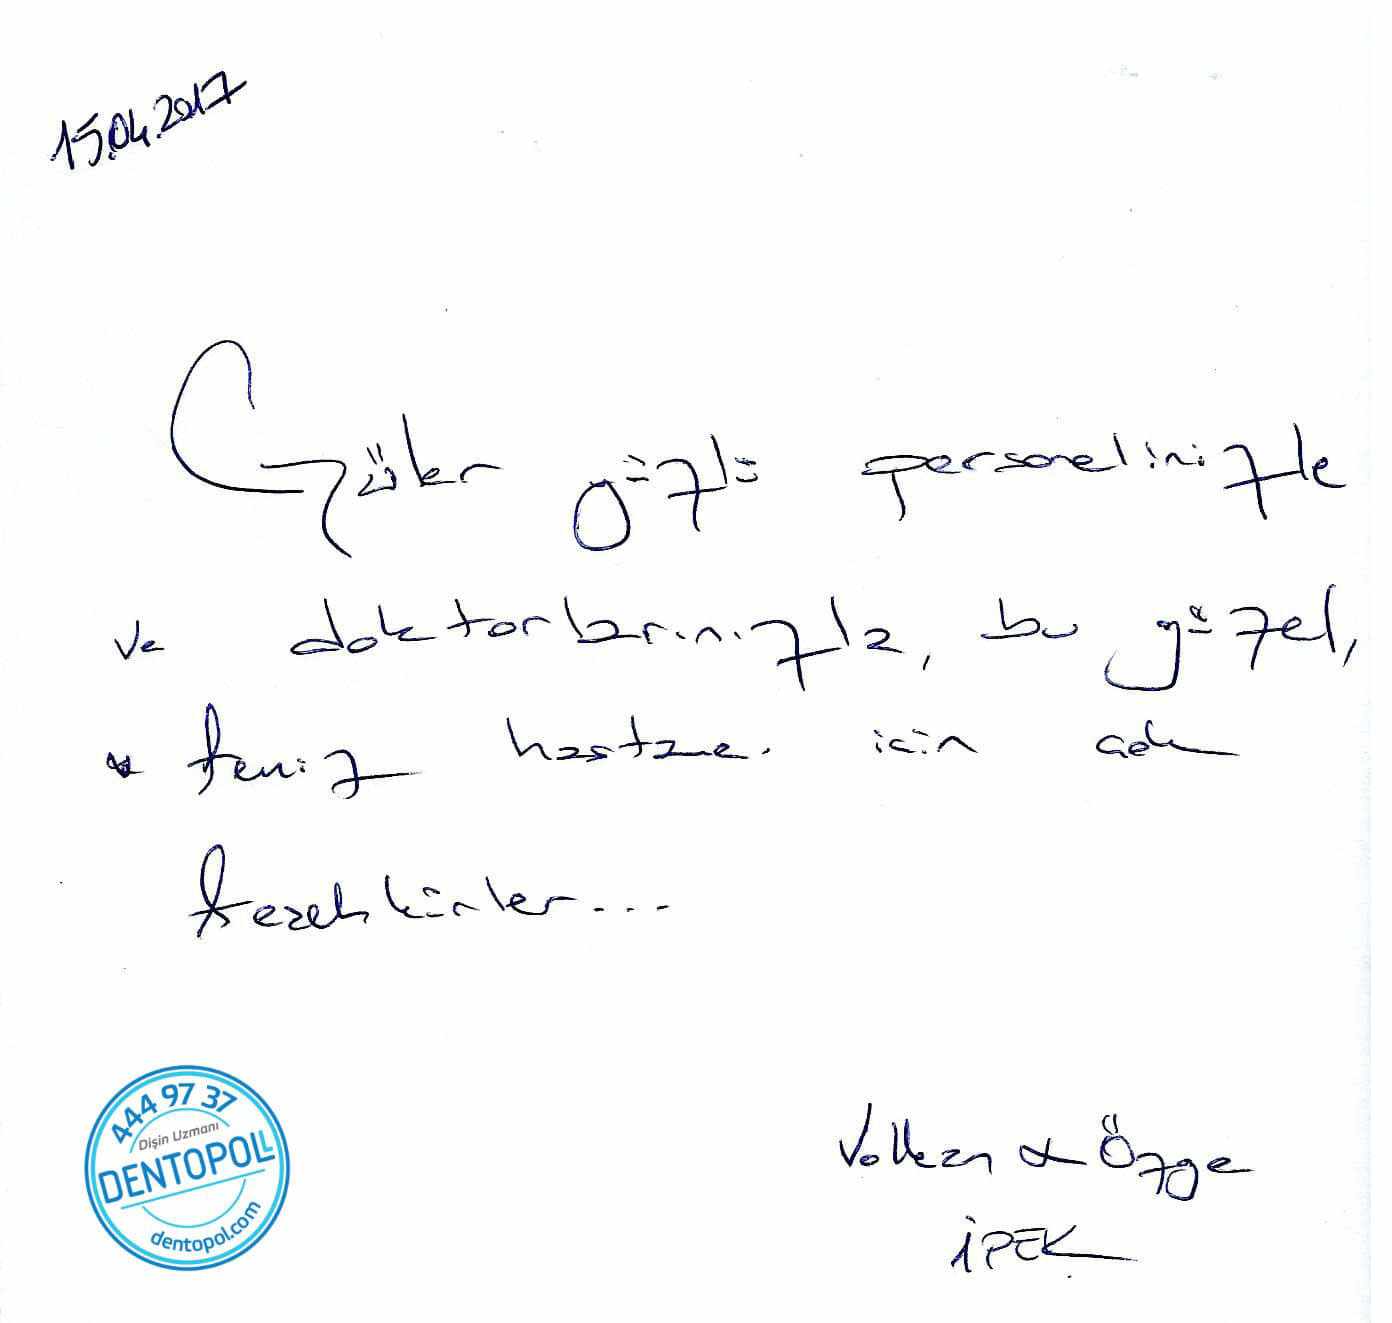 15.04.2017
Güler yüzlü personelinizle
ve doktorlarınızla, bu güzel,
temiz hastane için çok
teşekkürler...
Volkan & Özge
İPEK
444 97 37
Dişin Uzmanı
DENTOPOL
dentopol.com